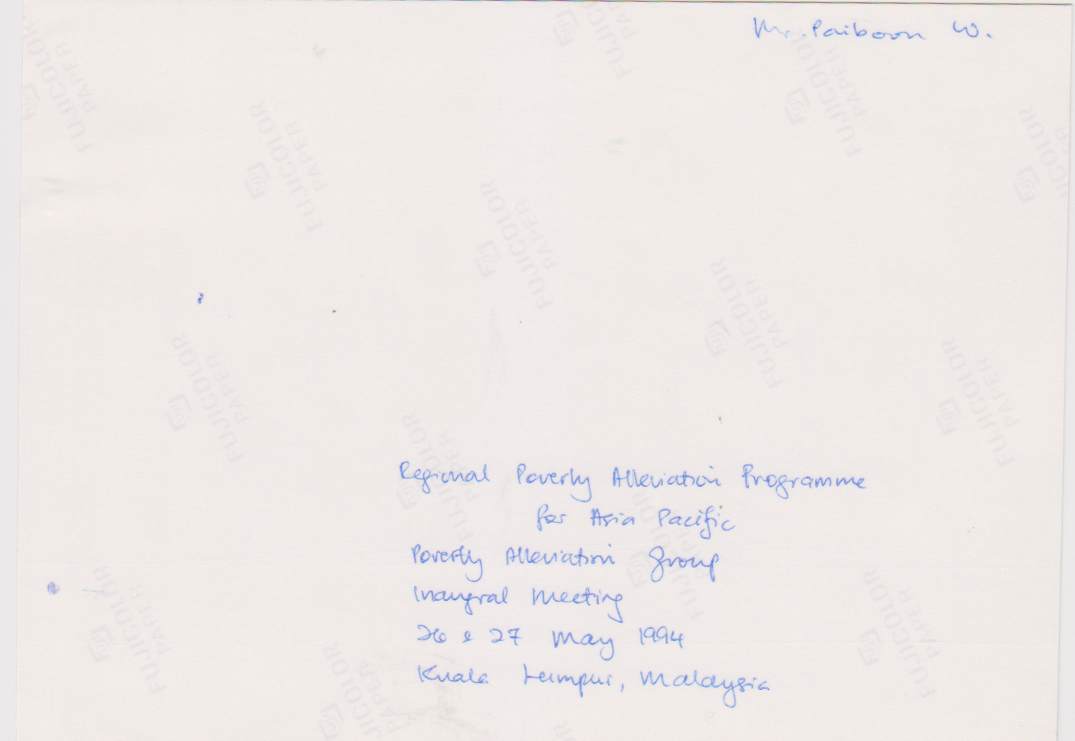 Mr. Paiboon W.
Regional Poverty Alleviation Programme
for Asia Pacific
Poverty Alleviation Group
Inaugral Meeting
26 & 27 May 1994
Kuala Lumpur, Malaysia
FUJICOLOR
PAPER